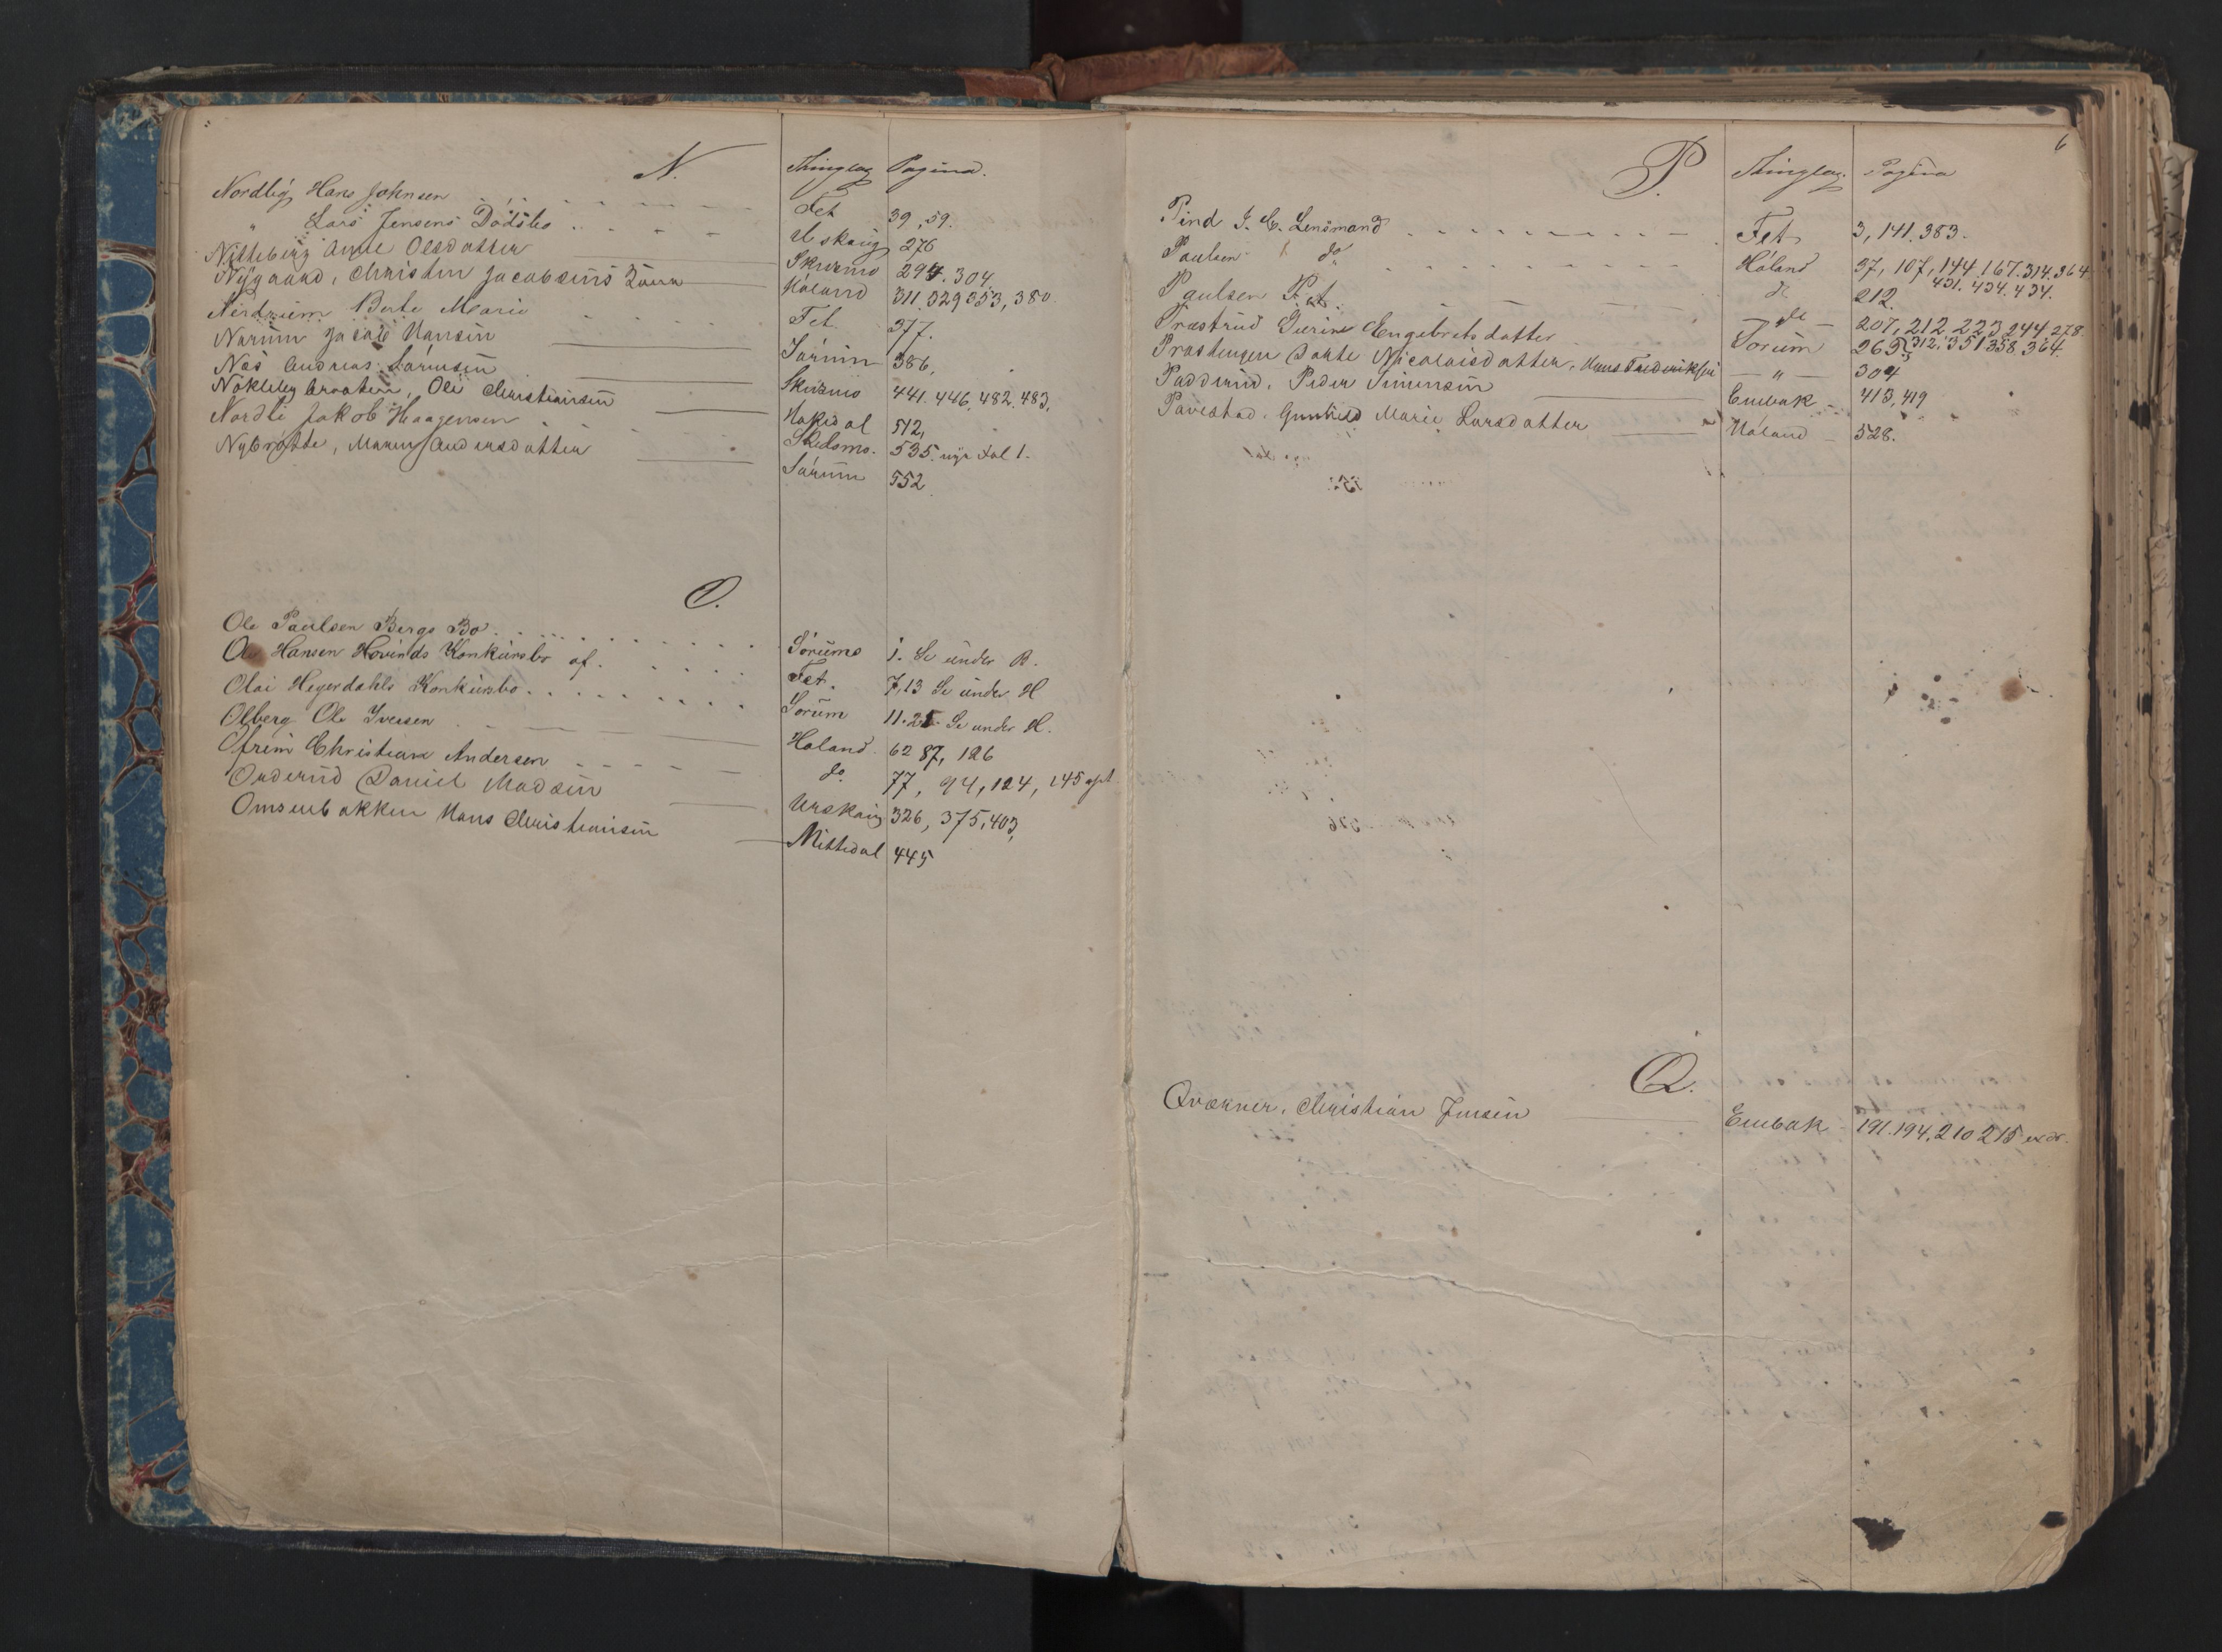 N. Thinglag Pagina.
Nordby, Hans Johnsen Fet 39, 59.
" Lars Jensens Dödsbo Urskoug 276
Nitteberg Anne Olsdatter Skedsmo 294. 304.
Nygaard, Christen Jacobsens Høland 311. 329 353, 380.
Berte Marie Fet 377.
Narum Jacob Hansen Sörum 386,
Näs Andreas Larensen Skedsmo 441. 446, 482. 483,
Nökleby braaten, Ole Christiansen Hakedal 512,
Nordli Jakob Haagensen Skedsmo. 535. nye Fol 1.
Nybrøtte, Maren Andersdatter Sörum 552
O.
Ole Paulsen Bergs Bo Sörums 1. Se under B.
Ole Hansen Hovinds Konkursbo af. Fet. 7, 13 Se under H
Olai Hegerdahls Konkursbo Sorum 11. 25. Se under H.
Olberg Ole Iversen Holand 62 87, 126
Ofreim Christian Andersen do 77, 94, 124, 145 opt
Ouderud Daniel Madsen Urskoug 326, 375, 403,
Omsenbakken Hans Christiansen Nittedal 445
6
P. Thinglag. Pagina
Pind J. C. Lensmand Fet 3, 141. 383.
Paulsen do Höland 37, 107, 144. 167. 314. 364
431. 434. 434.
Paulsen P. d 212.
Præstrud Gurine Engebretsdatter do 207, 212 223 244 278
312. 351 358. 364.
Prästengen Dorte Nicolaisdatter, Hans Frederiksen Sorum 265
Pudderud, Peder Simensen " 304
Enebak 413, 419
Pavestad. Gunhild Marie Larsdatter Höland 528.
Q.
Qværner, Christian Jensen Enebak 191. 194. 210 215